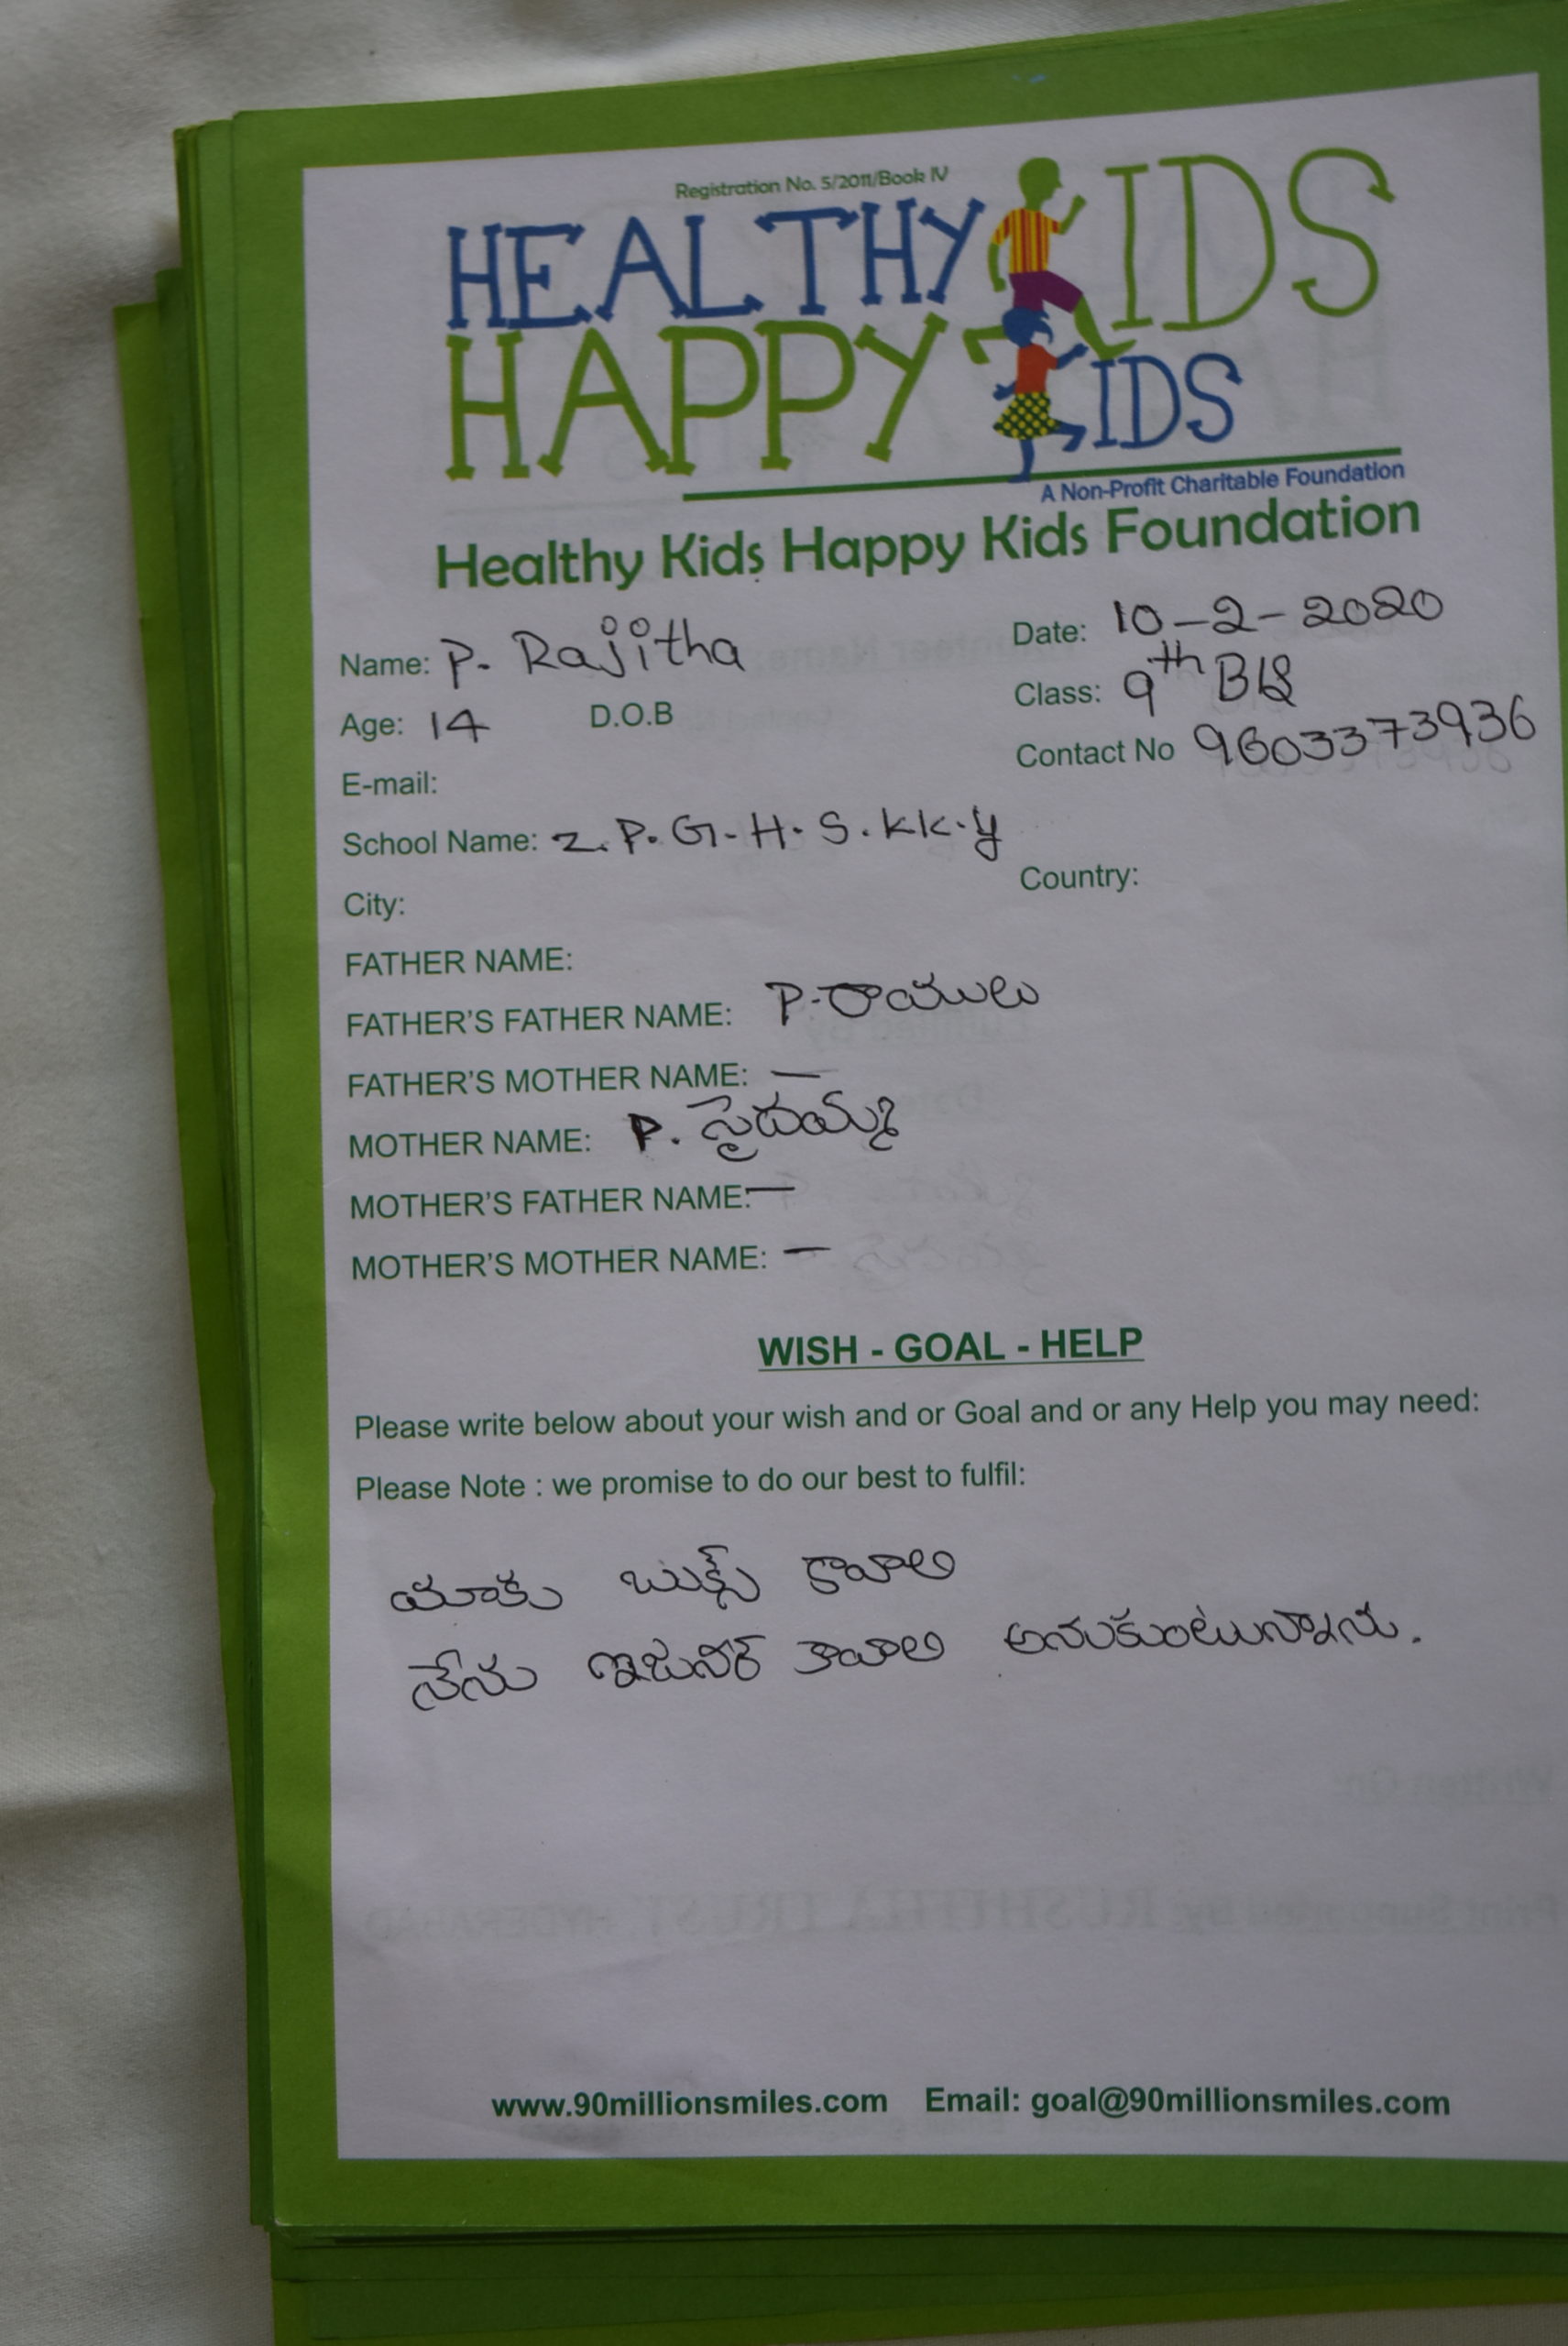 Registration No. 5/2011/Book IV
HEALTHY KIDS
HAPPY KIDS
A Non-Profit Charitable Foundation
Healthy Kids Happy Kids Foundation
Name: P. Rajitha
Date: 10-2-2020
Age: 14 D.O.B
Class: 9th
E-mail:
Contact No 9603373936
School Name: Z.P.G.H.S.KK.y
City:
Country:
FATHER NAME:
FATHER'S FATHER NAME: P.రాములు
FATHER'S MOTHER NAME: —
MOTHER NAME: P. సైదమ్మ
MOTHER'S FATHER NAME: —
MOTHER'S MOTHER NAME: —
WISH - GOAL - HELP
Please write below about your wish and or Goal and or any Help you may need:
Please Note : we promise to do our best to fulfil:
మాకు బుక్స్ కావాలి
నేను ఇజనీర్ కావాలి అనుకుంటున్నాను.
www.90millionsmiles.com Email: goal@90millionsmiles.com